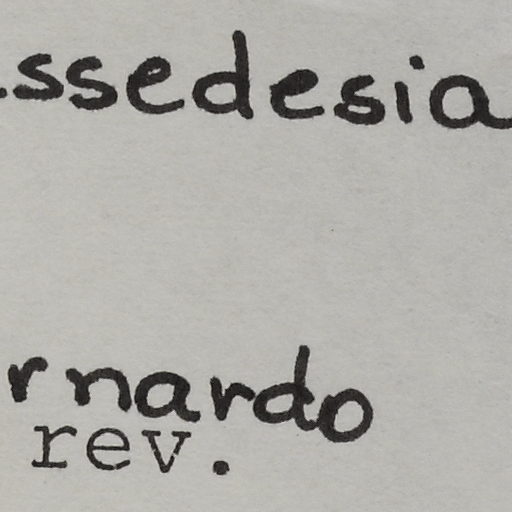 ssedesia
rnardo
rev.